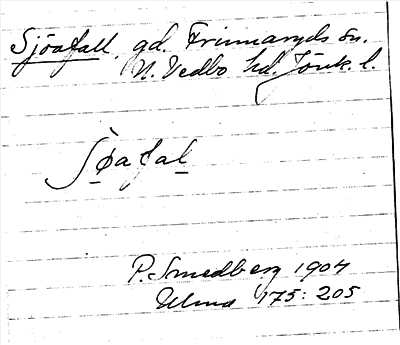 Sjöafall, gd. Frinnaryds sn.
N. Vedbo hd. Jönk. l.
ʃø̀afal
P. Smedberg 1904
Ulma 175:205